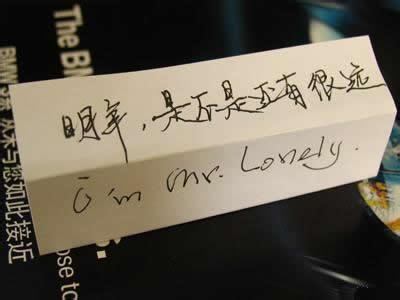 明年，是不是还有很远
i'm Mr. Lonely.
The BM
BMW 9系 艺术与您如此接近
S.
ose to